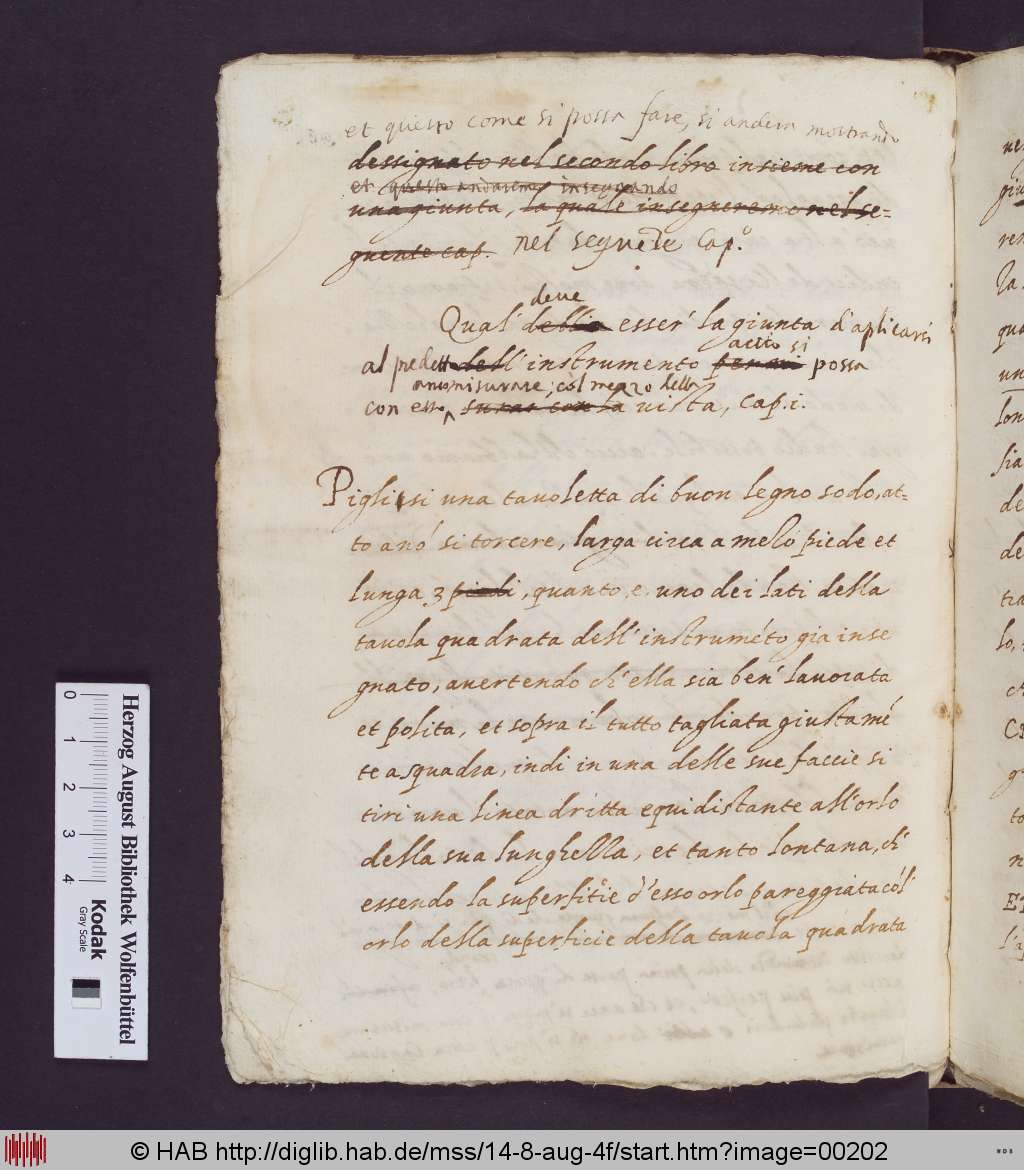 et questo come si possa fare, si andera mostrando
dessignato nel secondo libro insieme con
et questo andaremo insegnando
una giunta, la quale insegneremo nel se=
guente cap. nel seguẽte Cap.º
deve
Qual' esser' la giunta d'aplicarsi
accio si
al predetto dell' instrumento possa
misurare, col mezzo della
con esso surar con la vista, Cap. i.
Piglisi una tavoletta di buon legno sodo, at=
to a nó si torcere, larga circa a mezo piede et
lunga 3 piedi, quanto e uno dei lati della
tavola quadrata dell' instruméto gia inse
gnato, avertendo ch' ella sia ben' lavorata
et polita, et sopra il tutto tagliata giustamé
te a squadra, indi in una delle sue faccie si
tiri una linea dritta equidistante all'orlo
della sua lunghezza, et tanto lontana, ch'
essendo la superfitie d'esso orlo pareggiata cól'
orlo della superficie della tavola quadrata
Herzog August Bibliothek Wolfenbüttel
0 1 2 3 4
Kodak
Gray Scale
HAB
© HAB http://diglib.hab.de/mss/14-8-aug-4f/start.htm?image=00202
WDB